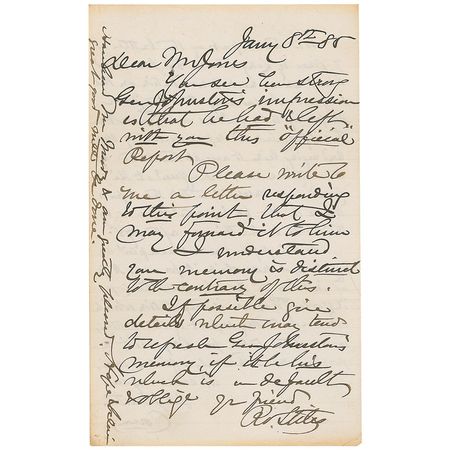 Jany 8th 85
Dear Mr Jones
You see how strong
Gen Johnston's impression
is that he had & left
with you this "official"
Report
Please write to
me a letter responding
to this point, that I
may forward it to him
I understand
your memory is distinct
to the contrary of this.
If possible give
details which may tend
to refresh Gen Johnston's
memory, if it be his
which is in default
& oblige yr friend
Ro. Stiles
Have heard Mr Moody & am greatly pleased. Hope & believe
great good will be done.